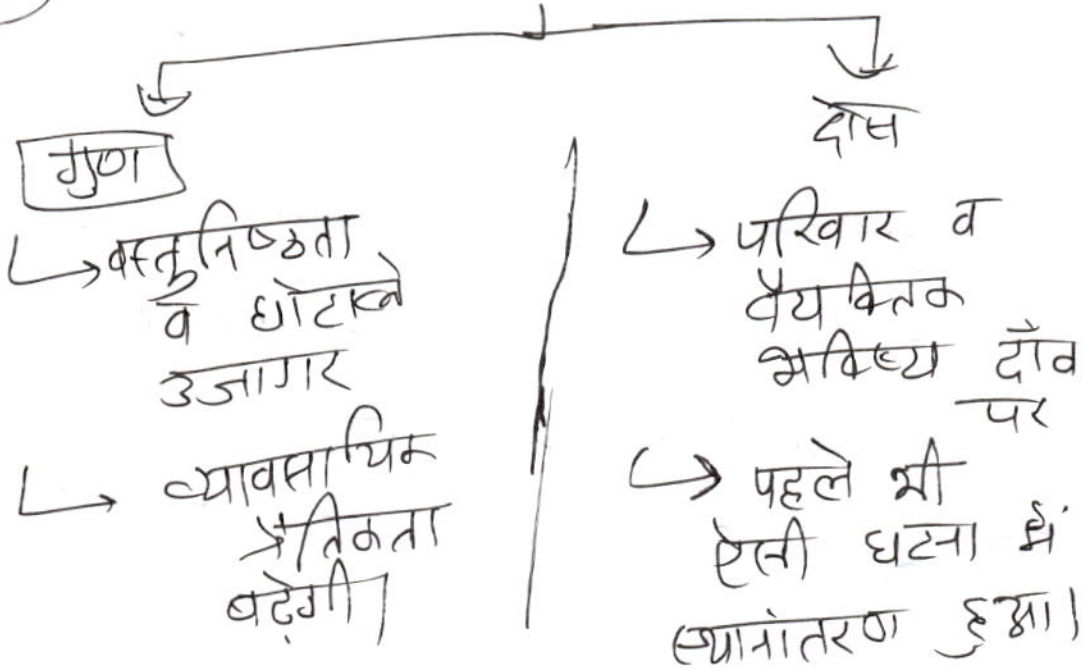 गुण
वस्तुनिष्ठता
व घोटाले
उजागर
व्यावसायिक
नैतिकता
बढ़ेगी।
दोष
परिवार व
वैयक्तिक
भविष्य दाँव
पर
पहले भी
ऐसी घटना में
स्थानांतरण हुआ।